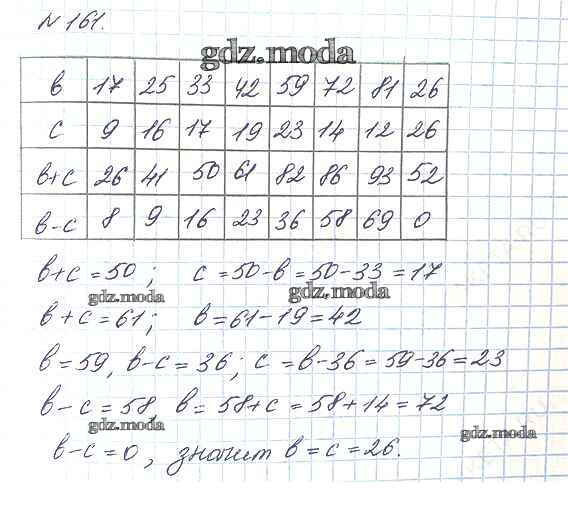 № 161.
gdz.moda
в 17 25 33 42 59 72 81 26
с 9 16 17 19 23 14 12 26
в+с 26 41 50 61 82 86 93 52
в-с 8 9 16 23 36 58 69 0
в+с = 50 ; с = 50-в = 50-33 = 17
gdz.moda gdz.moda
в + с = 61; в = 61-19 = 42
в = 59, в-с = 36; с = в-36 = 59-36 = 23
в - с = 58, в = 58+с = 58+14 = 72
gdz.moda gdz.moda
в-с = 0, значит в = с = 26.